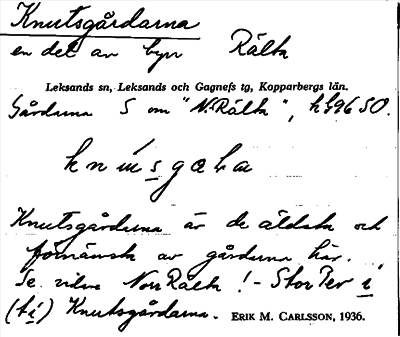 Knutsgårdarna
en del av byn Rälta
Leksands sn, Leksands och Gagnefs tg, Kopparbergs län.
Gårdarna S om "N. Rälta",
Knutsgårdarna är de äldsta och
förnämsta av gårdarna här.
Se vidare Norr Rälta! - Stor Per i
(ti) Knutsgårdarna. ERIK M. CARLSSON, 1936.